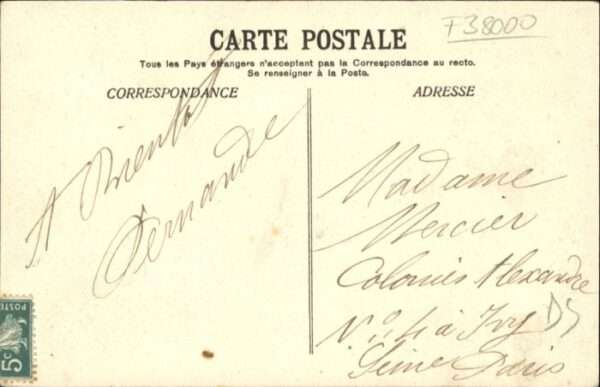 F38000
CARTE POSTALE
Tous les Pays étrangers n'acceptent pas la Correspondance au recto.
Se renseigner à la Poste.
CORRESPONDANCE
ADRESSE
A Bientôt
Fernande
Madame
Mercier
Colonies Alexandre
N° 4 à Ivry
Seine Paris
DS
POSTE
5c